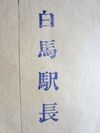 白馬駅長